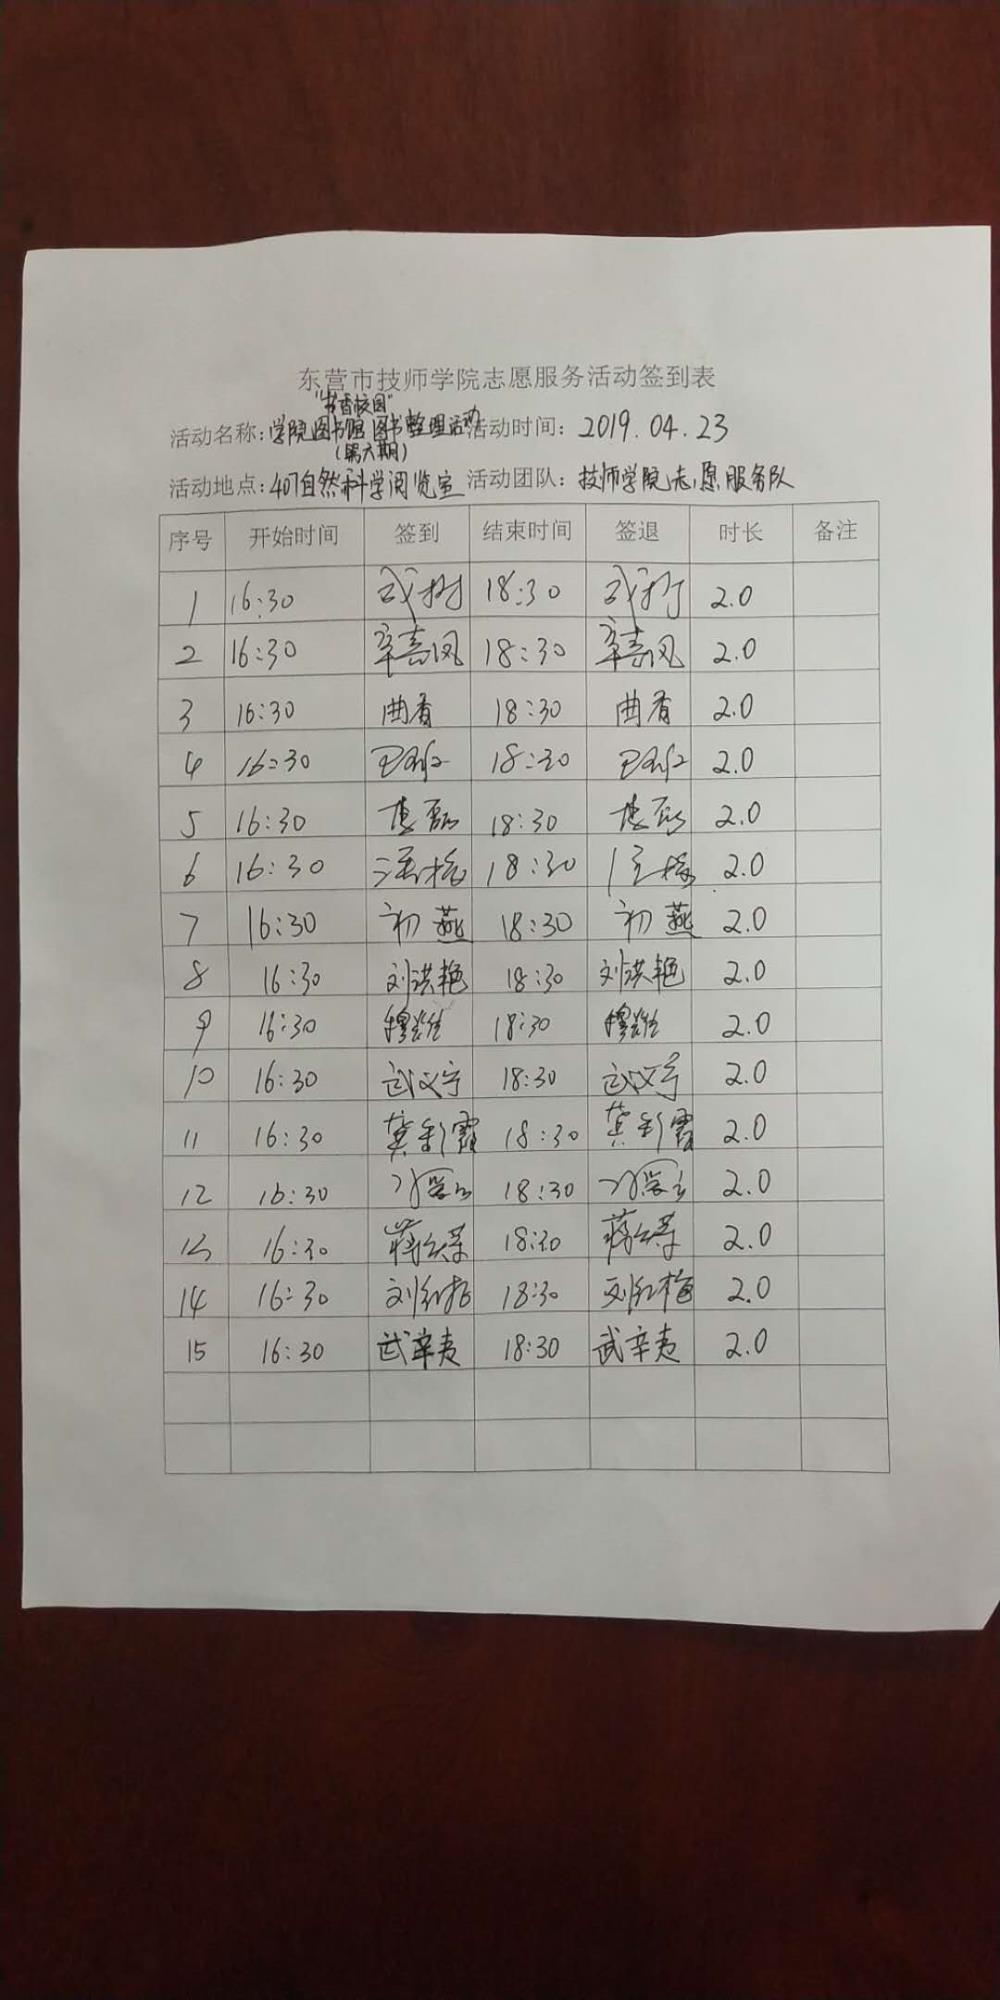 东营市技师学院志愿服务活动签到表
"书香校园"
活动名称:学院图书馆图书整理活动 活动时间: 2019.04.23
(第六期)
活动地点:407自然科学阅览室 活动团队: 技师学院志愿服务队
序号 开始时间 签到 结束时间 签退 时长 备注
1 16:30 18:30 2.0
2 16:30 辛嘉凤 18:30 辛嘉凤 2.0
3 16:30 曲香 18:30 曲香 2.0
4 16:30 18:30 2.0
5 16:30 18:30 2.0
6 16:30 18:30 2.0
7 16:30 初燕 18:30 初燕 2.0
8 16:30 刘洪艳 18:30 刘洪艳 2.0
9 16:30 18:30 2.0
10 16:30 武文宁 18:30 武文宁 2.0
11 16:30 龚彩霞 18:30 龚彩霞 2.0
12 16:30 18:30 2.0
13 16:30 18:30 2.0
14 16:30 刘红梅 18:30 刘红梅 2.0
15 16:30 武辛夷 18:30 武辛夷 2.0